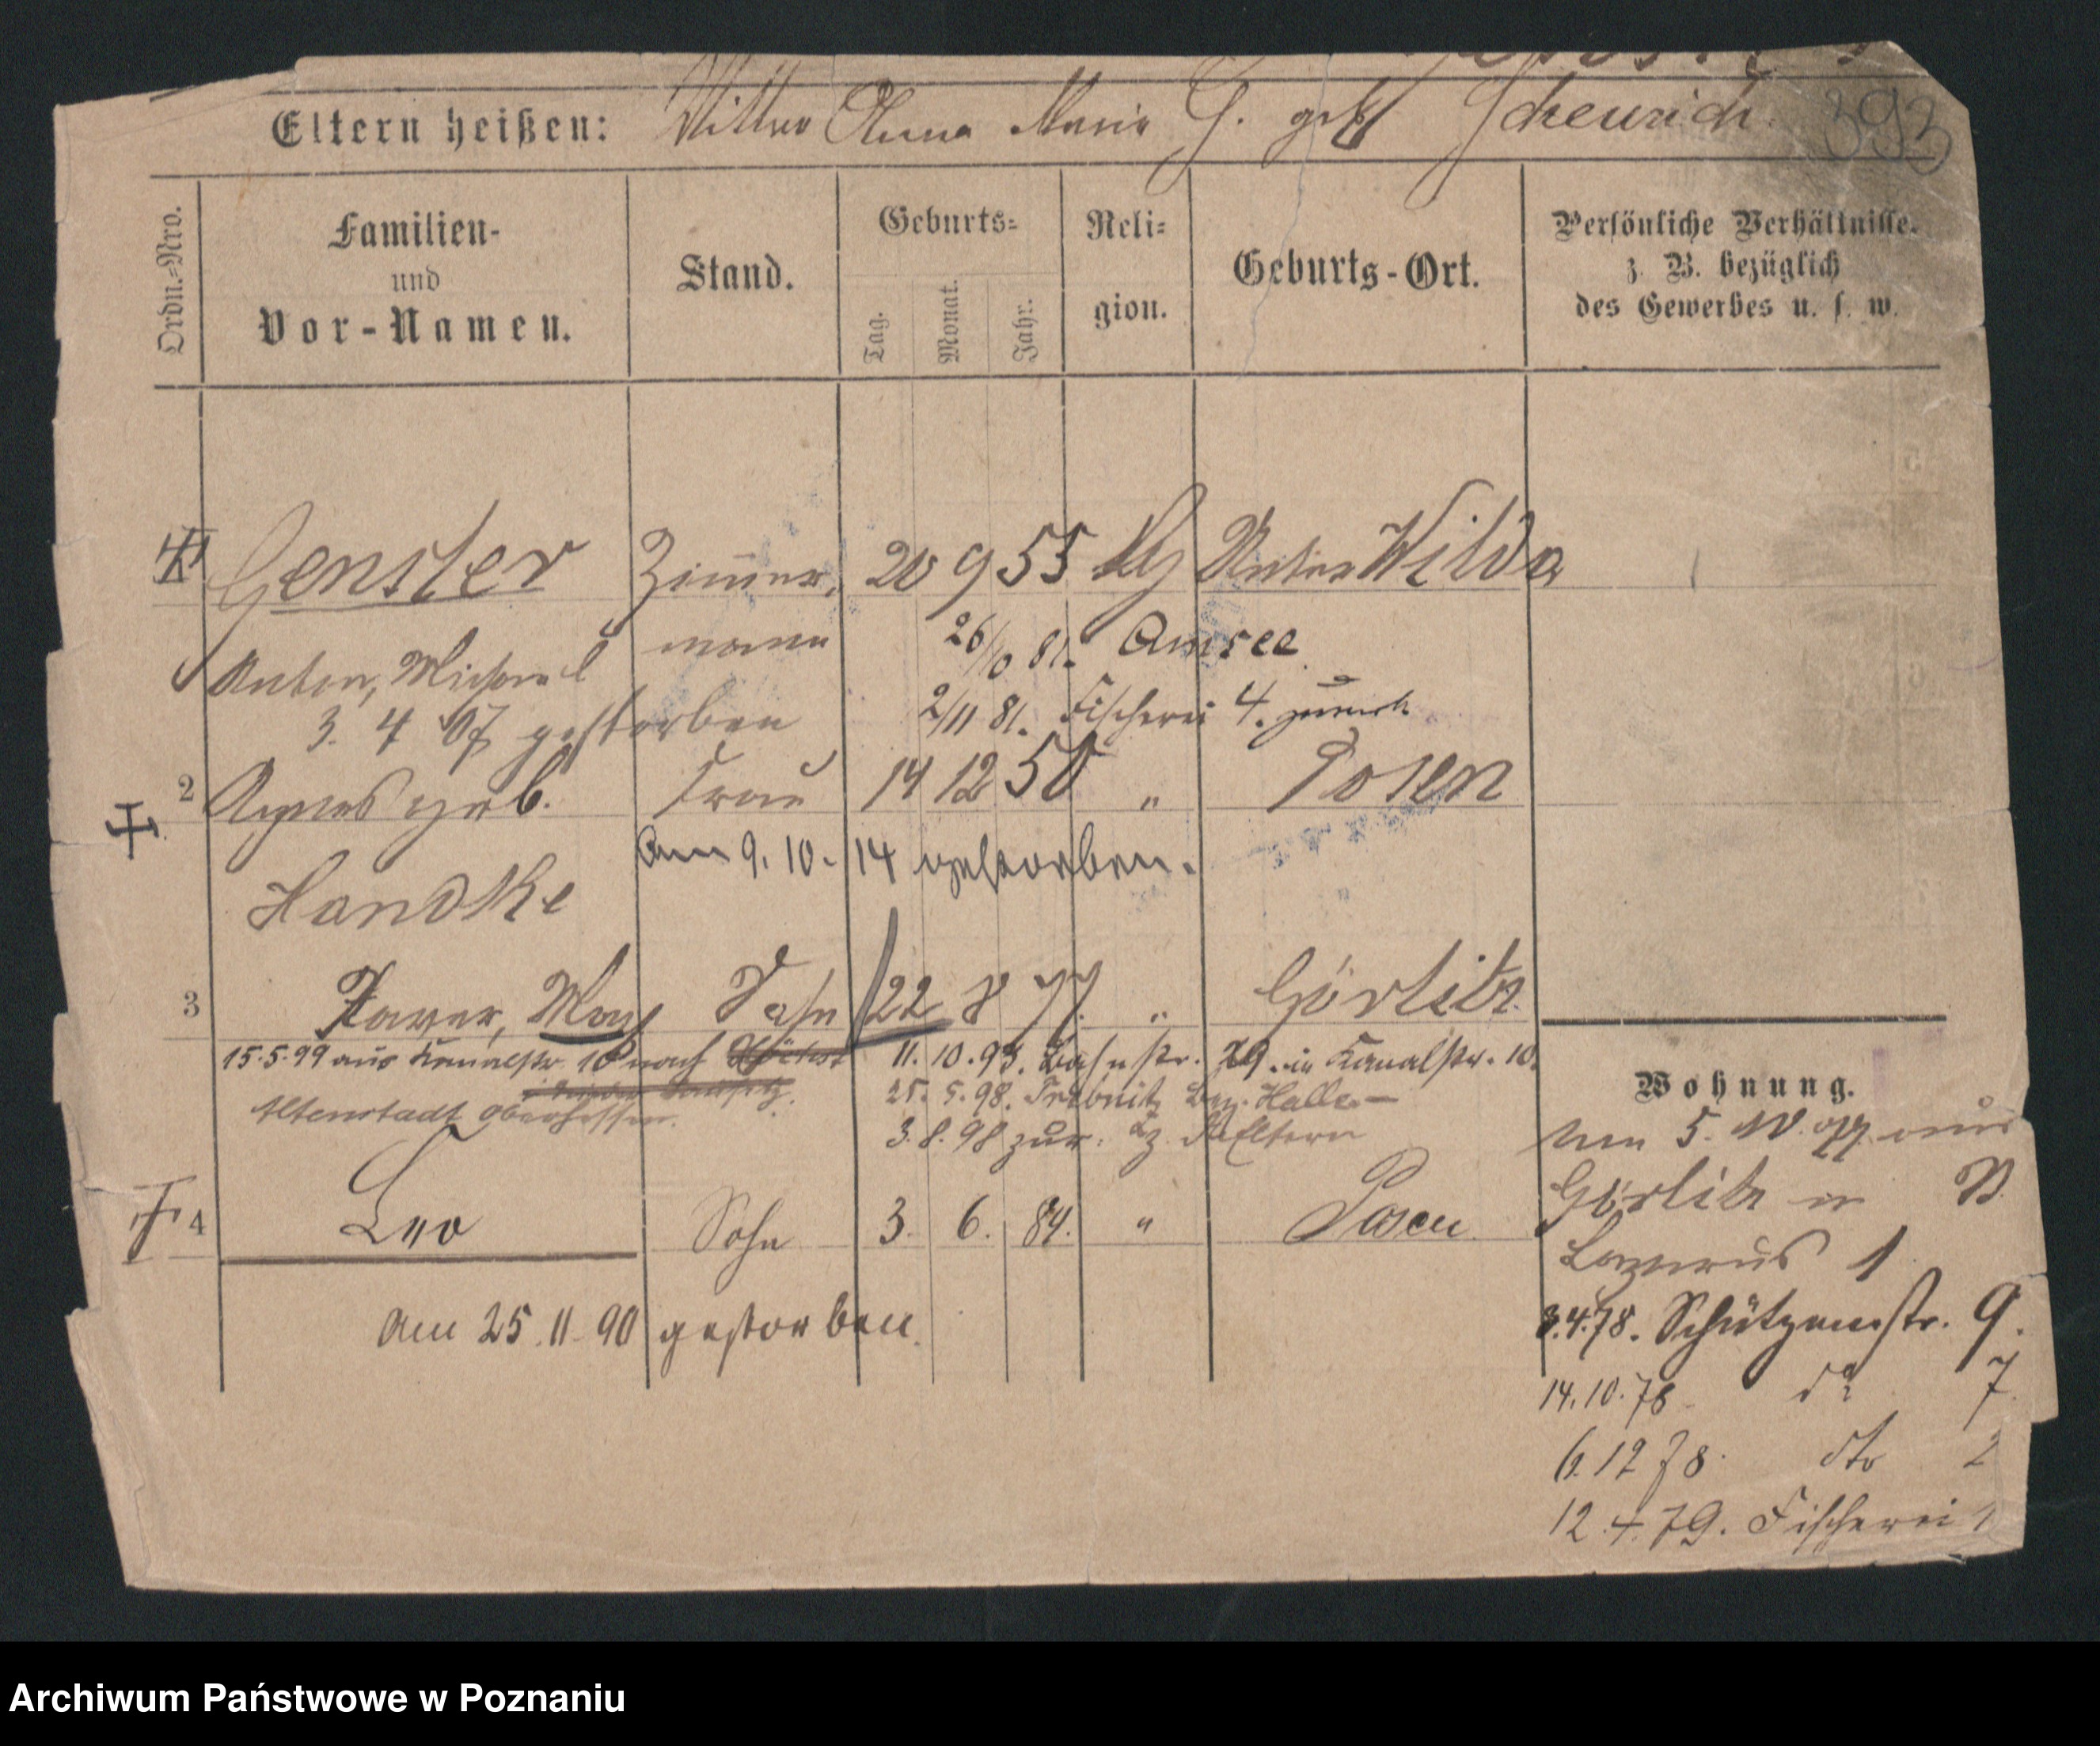 Eltern heißen: Mutter Anna Maria G. geb Scheurich. 393
Ordn.=Nro. Familien- und Vor-Namen. Stand. Geburts= Tag. Monat. Jahr. Reli= gion. Geburts-Ort. Persönliche Verhältnisse. z. B. bezüglich des Gewerbes u. s. w.
Genster Zimmer, 20 9 55 Unter Wilda
Anton, Michael mann 26/10 81. Amsee
3. 4 07 gestorben 2/11 81. Fischerei 4. zurück
2 Agnes geb. Frau 14 12 50 " Posen
Am 9. 10. 14 gestorben.
Handke
3 Xaver, Max Sohn 22 8 77. " Görlitz
15.5.99 aus Kanalstr 10 nach Höchst 11. 10. 93. Bahnstr. 29. in Kanalstr. 10.
Altenstadt Oberhessen. 25. 5. 98. Trebnitz Bez. Halle
3. 8. 98 zur. z. Eltern
4 Leo Sohn 3. 6. 84. " Posen
Am 25. 11. 90 gestorben.
Wohnung.
Am 5. 10. 77 aus
Görlitz n
Lazarus 1
3.4.78. Schützenstr. 9.
14.10.78 do 7
6.12 78. dto 2
12.4.79. Fischerei 1
Archiwum Państwowe w Poznaniu